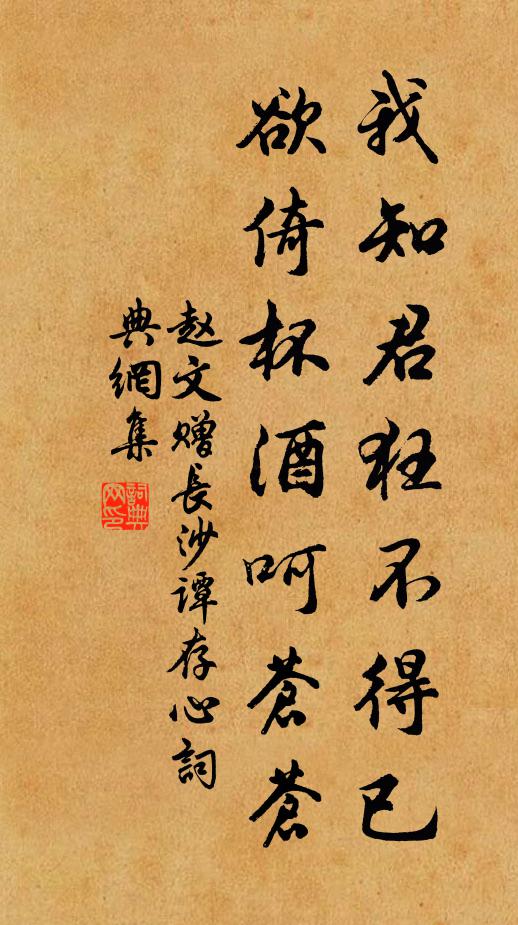 我知君狂不得已
欲倚杯酒呵蒼蒼
赵文赠長沙谭存心詞
典網集
詞典
网印